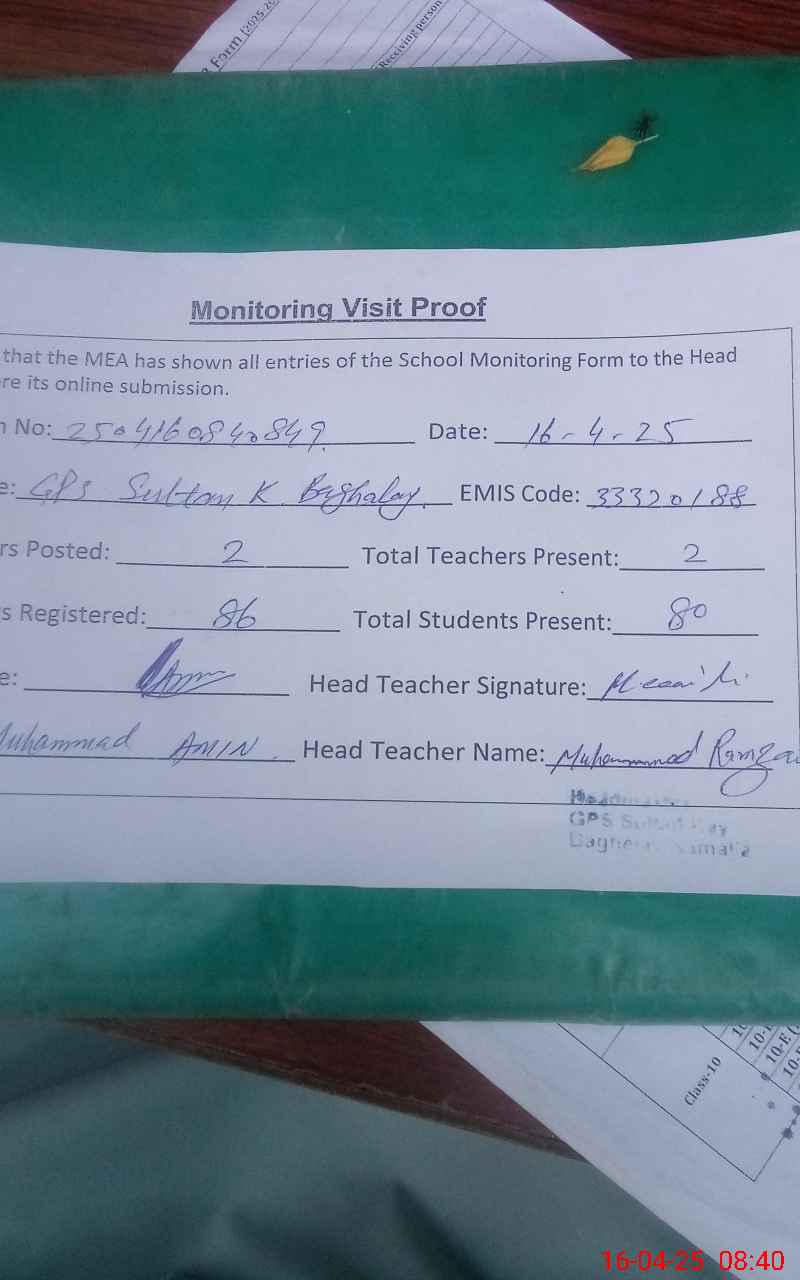 Form [2025-26
Receiving person
Monitoring Visit Proof
that the MEA has shown all entries of the School Monitoring Form to the Head
re its online submission.
n No: 2504160840849 Date: 16-4-25
e: GPS Sultan K Baghalay EMIS Code: 33320188
rs Posted: 2 Total Teachers Present: 2
s Registered: 86 Total Students Present: 80
e: Head Teacher Signature:
Muhammad AMIN Head Teacher Name: Muhammmad Ramza
GPS
Class-10
10-E
16-04-25 08:40